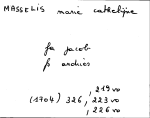 MASSELIS marie cathelijne
fa jacob
f⁰ andries
, 219 vo
(1704) 326, 223 vo
, 226 vo